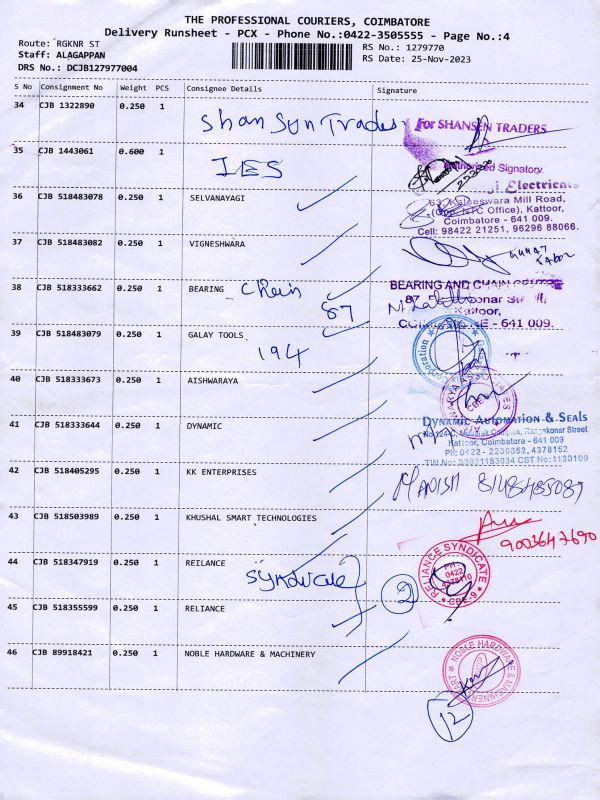 THE PROFESSIONAL COURIERS, COIMBATORE
Delivery Runsheet - PCX - Phone No.:0422-3505555 - Page No.:4
Route: RGKNR ST
RS No.: 1279770
Staff: ALAGAPPAN
RS Date: 25-Nov-2023
DRS No.: DCJB127977004
S No Consignment No Weight PCS Consignee Details Signature
34 CJB 1322890 0.250 1
Shan Sun Traders
For SHANSEN TRADERS
35 CJB 1443061 0.600 1
IES
Authorized Signatory
36 CJB 518483078 0.250 1 SELVANAYAGI
Electricals
63, Kaleeswara Mill Road,
(Opp. NTC Office), Kattoor,
Coimbatore - 641 009.
Cell: 98422 21251, 96296 88066.
37 CJB 518483082 0.250 1 VIGNESHWARA
38 CJB 518333662 0.250 1 BEARING Chain
87
BEARING AND CHAIN CENTRE
Kattoor,
641 009.
39 CJB 518483079 0.250 1 GALAY TOOLS
194
40 CJB 518333673 0.250 1 AISHWARAYA
41 CJB 518333644 0.250 1 DYNAMIC
DYNAMIC AUTOMATION & SEALS
Rangakonar Street
Kattoor, Coimbatore - 641 009
PH: 0422 - 2230852, 4378152
TIN No: 33921183034 CST No: 1130109
42 CJB 518405295 0.250 1 KK ENTERPRISES
MANISH
43 CJB 518503989 0.250 1 KHUSHAL SMART TECHNOLOGIES
9003647690
44 CJB 518347919 0.250 1 REILANCE
Syndicate
2
RELIANCE SYNDICATE
PH:
0422
4378110
CBE-9
45 CJB 518355599 0.250 1 RELIANCE
46 CJB 89918421 0.250 1 NOBLE HARDWARE & MACHINERY
NOBLE HARDWARE & MACHINERY MART
12